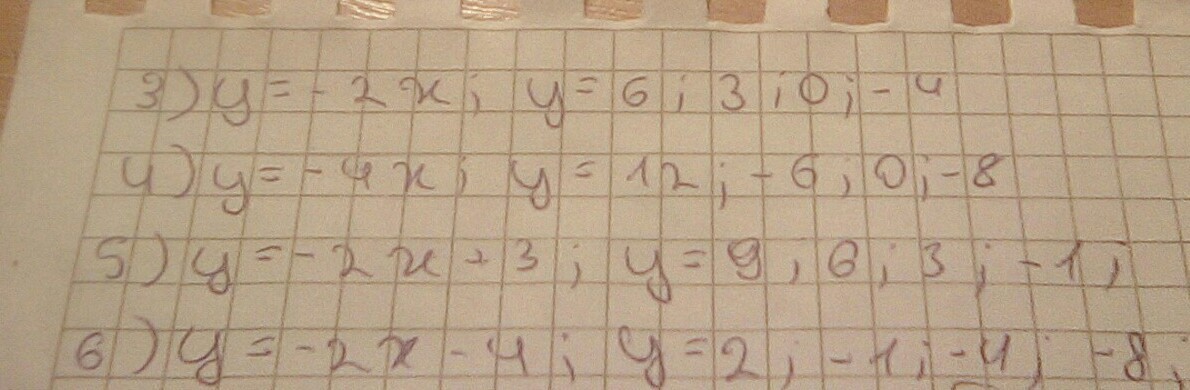 3) y = - 2x; y = 6; 3; 0; - 4
4) y = - 4x; y = 12; - 6; 0; - 8
5) y = - 2x + 3; y = 9; 6; 3; - 1;
6) y = - 2x - 4; y = 2; - 1; - 4; - 8;